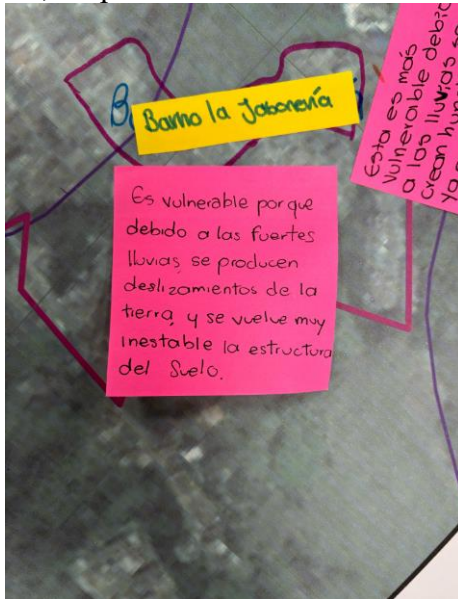 B
Barrio la Jabonería
Es vulnerable por que
debido a las fuertes
lluvias, se producen
deslizamientos de la
tierra, y se vuelve muy
inestable la estructura
del Suelo.
Esta es más
Vulnerable debid
a las lluvias se
crean hun
ya